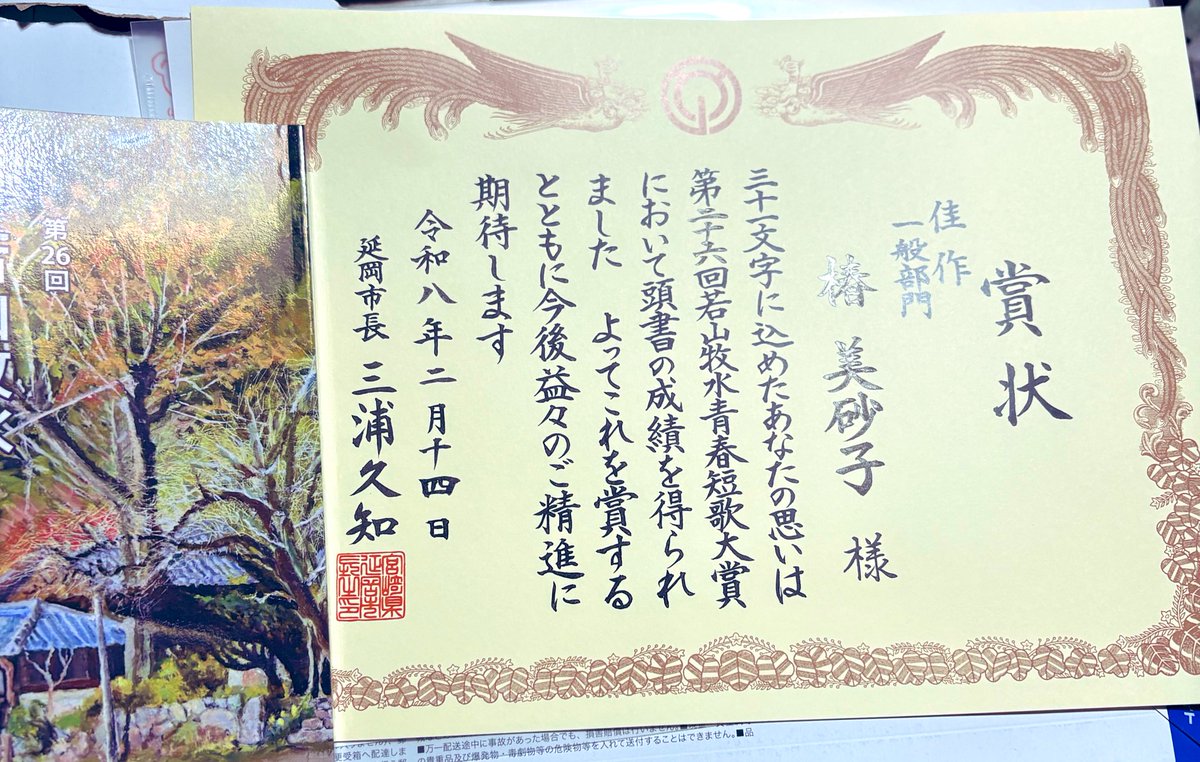 賞状
佳作
一般部門
椿 美砂子 様
三十一文字に込めたあなたの思いは
第二十六回若山牧水青春短歌大賞
において頭書の成績を得られ
ました よってこれを賞する
とともに今後益々のご精進に
期待します
令和八年二月十四日
延岡市長 三浦久知
宮崎県
延岡市
長之印
第26回
■万一配送途中に事故があった場合でも、損害賠償は行いません。
の貴重品及び爆発物・毒劇物等の危険物等を入れて送付することはできません。■品
更受箱へ配達しま